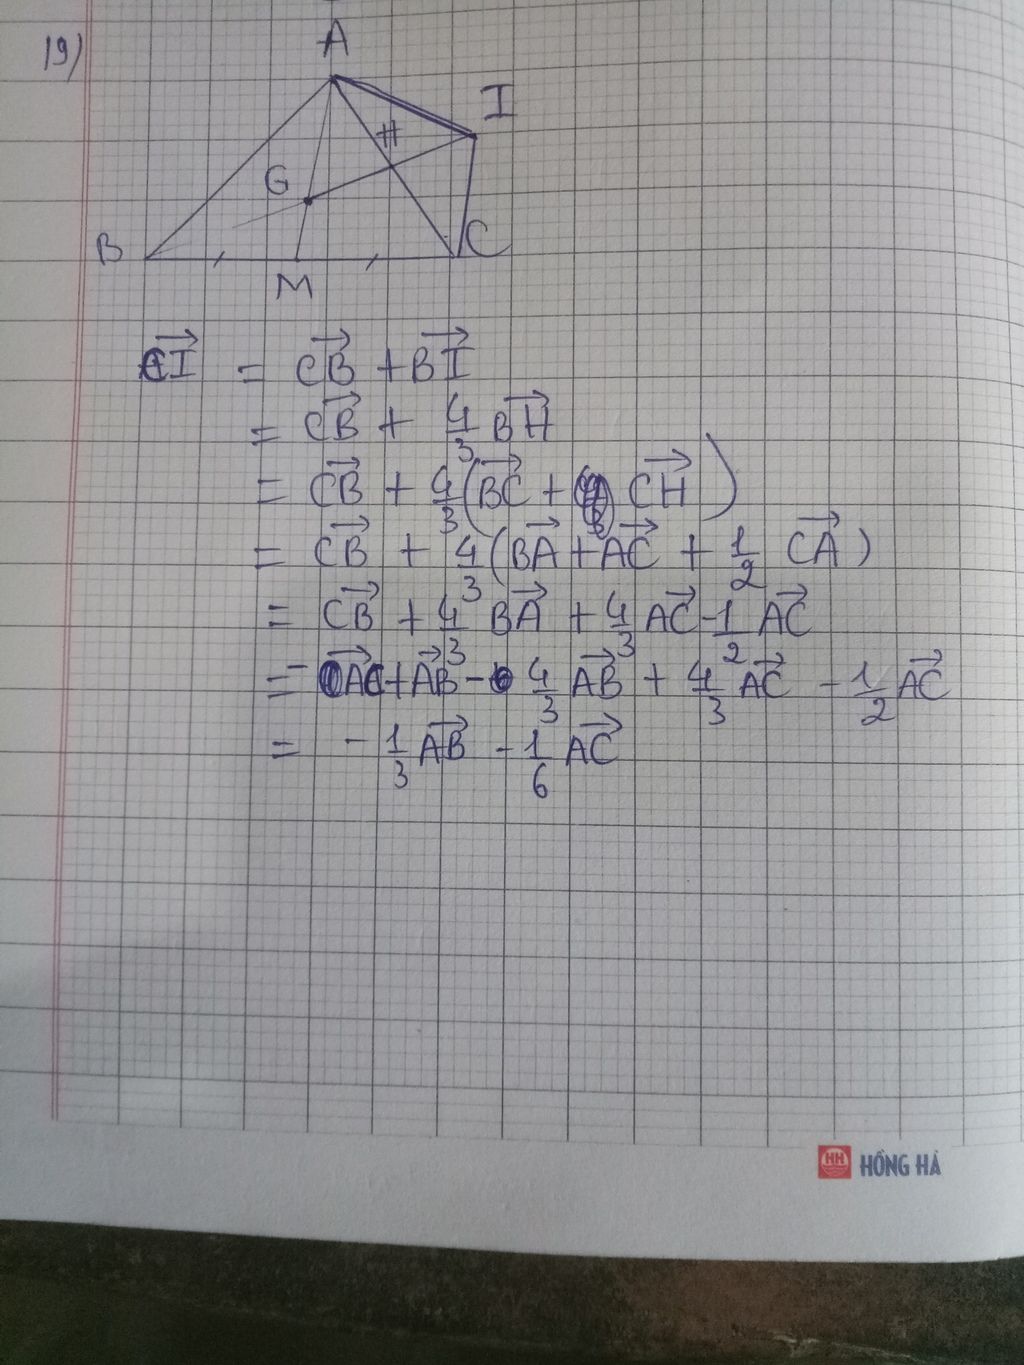 19)
A
I
H
G
B
C
M
CI→ = CB→ + BI→
= CB→ + 4/3 BH→
= CB→ + 4/3 (BC→ + CH→)
= CB→ + 4/3 (BA→ + AC→ + 1/2 CA→)
= CB→ + 4/3 BA→ + 4/3 AC→ - 1/2 AC→
= - AC→ + AB→ - 4/3 AB→ + 4/3 AC→ - 1/2 AC→
= - 1/3 AB→ - 1/6 AC→
HH HỒNG HÀ